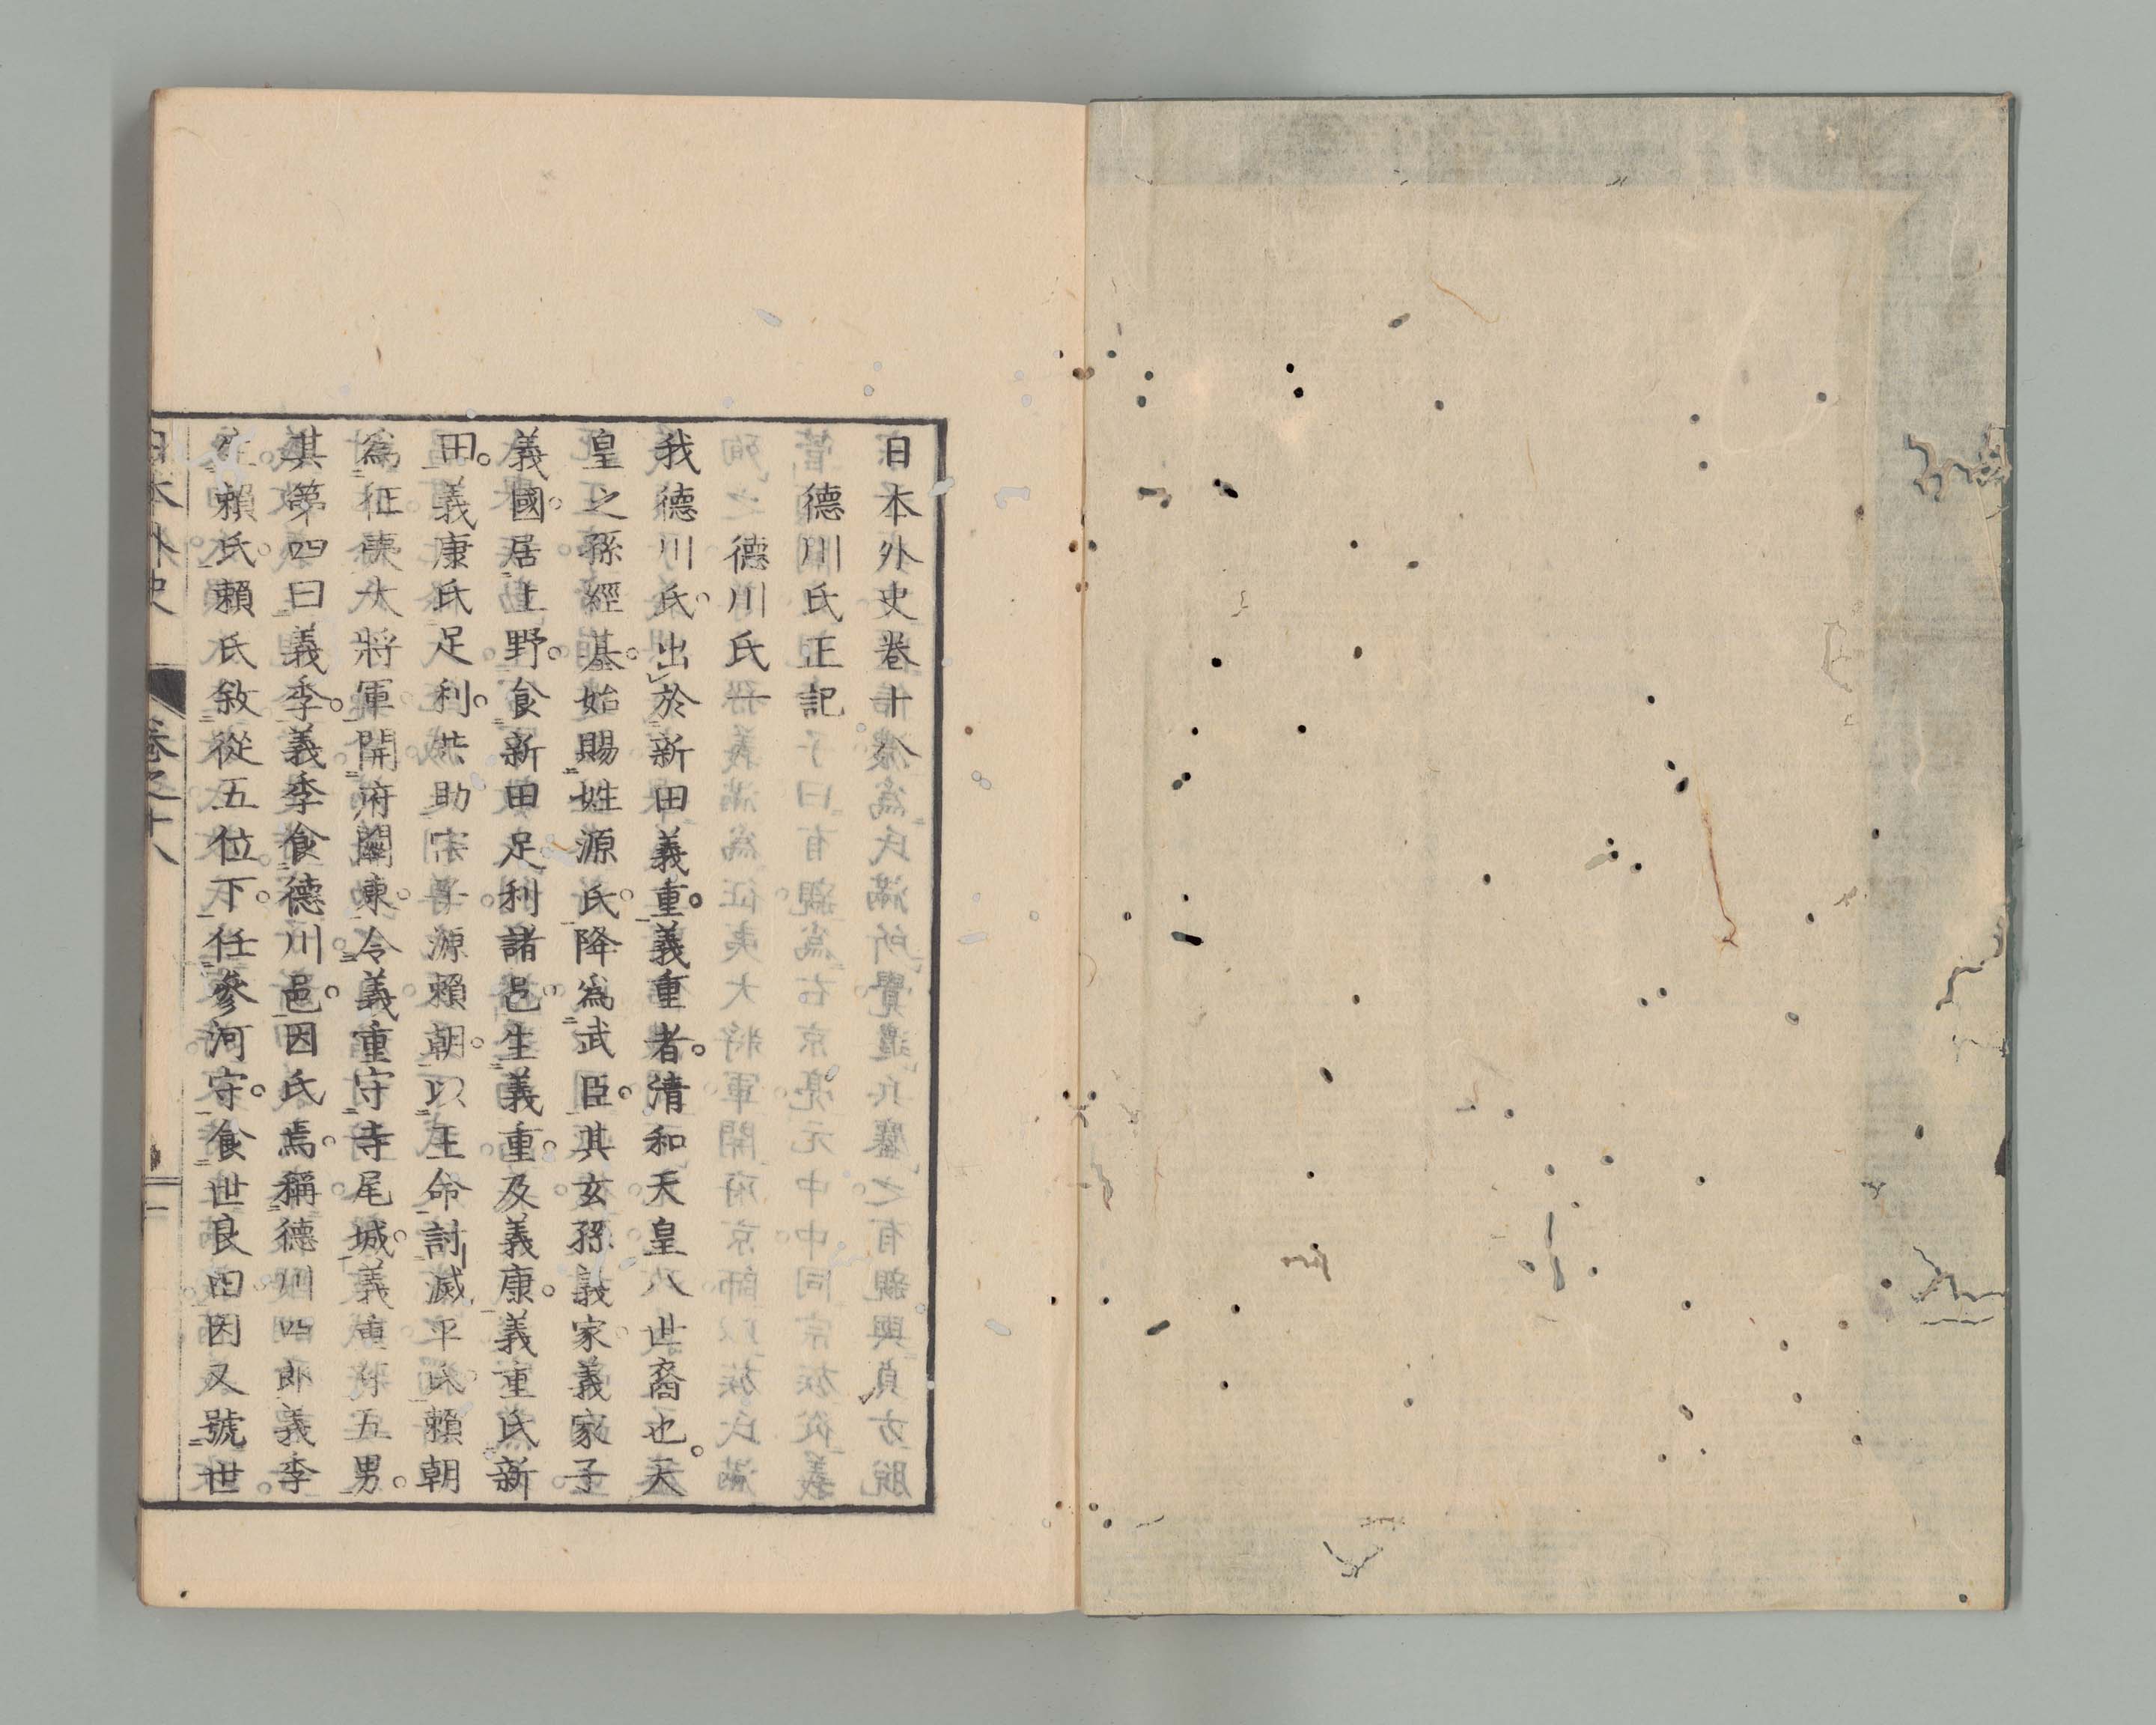 日本外史卷十八
德川氏正記
德川氏一
我德川氏。出於新田義重。義重者。清和天皇八世裔也。天
皇之孫經基。始賜姓源氏。降爲武臣。其玄孫義家。義家子
義國。居上野。食新田足利諸邑。生義重及義康。義重氏新
田。義康氏足利。共助宗子源賴朝。以王命討滅平氏。賴朝
爲征夷大將軍。開府關東。令義重守寺尾城。義重有五男。
其第四曰義季。義季食德川邑。因氏焉。稱德川四郎。義季
生賴氏。賴氏敘從五位下。任參河守。食世良田。因又號世
日本外史 卷之十八 一